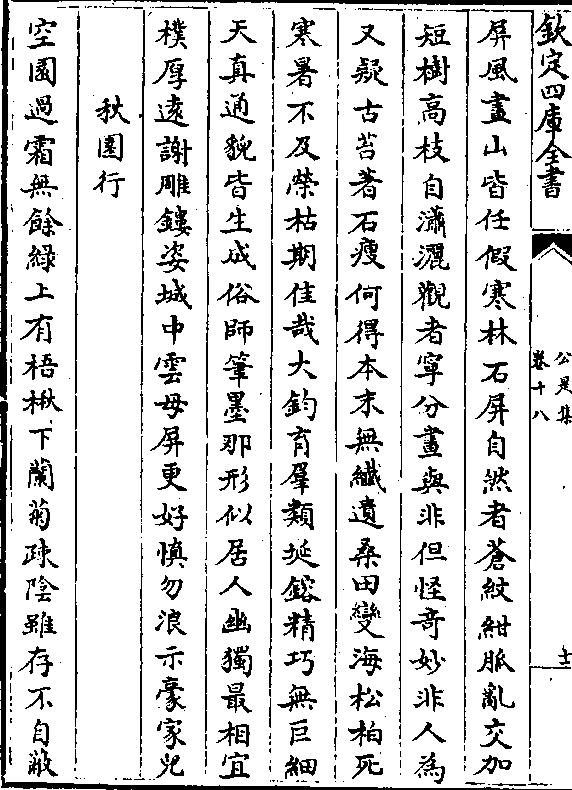 欽定四庫全書
公是集
卷十八
十二
屏風畫山皆任假寒林石屏自然者蒼紋紺脈亂交加
短樹高枝自瀟灑觀者寧分畫與非但怪奇妙非人為
又疑古苔著石瘦何得本末無纖遺桑田變海松柏死
寒暑不及榮枯期佳哉大鈞育羣類埏鎔精巧無巨細
天真通貌皆生成俗師筆墨那形似居人幽獨最相宜
樸厚遠謝雕鏤姿城中雲母屏更好慎勿浪示豪家兒
秋園行
空園過霜無餘綠上有梧楸下蘭菊疎陰雖存不自蔽